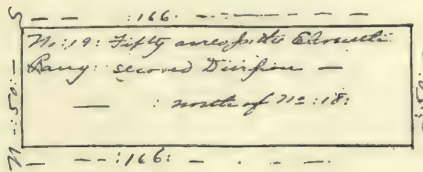 S — — :166: — — — —
No: 19: Fifty acres in the Eleventh
Rang: second Division —
— : north of No: 18:
N — : 50: —
: 50: —
— — — :166: — . — —